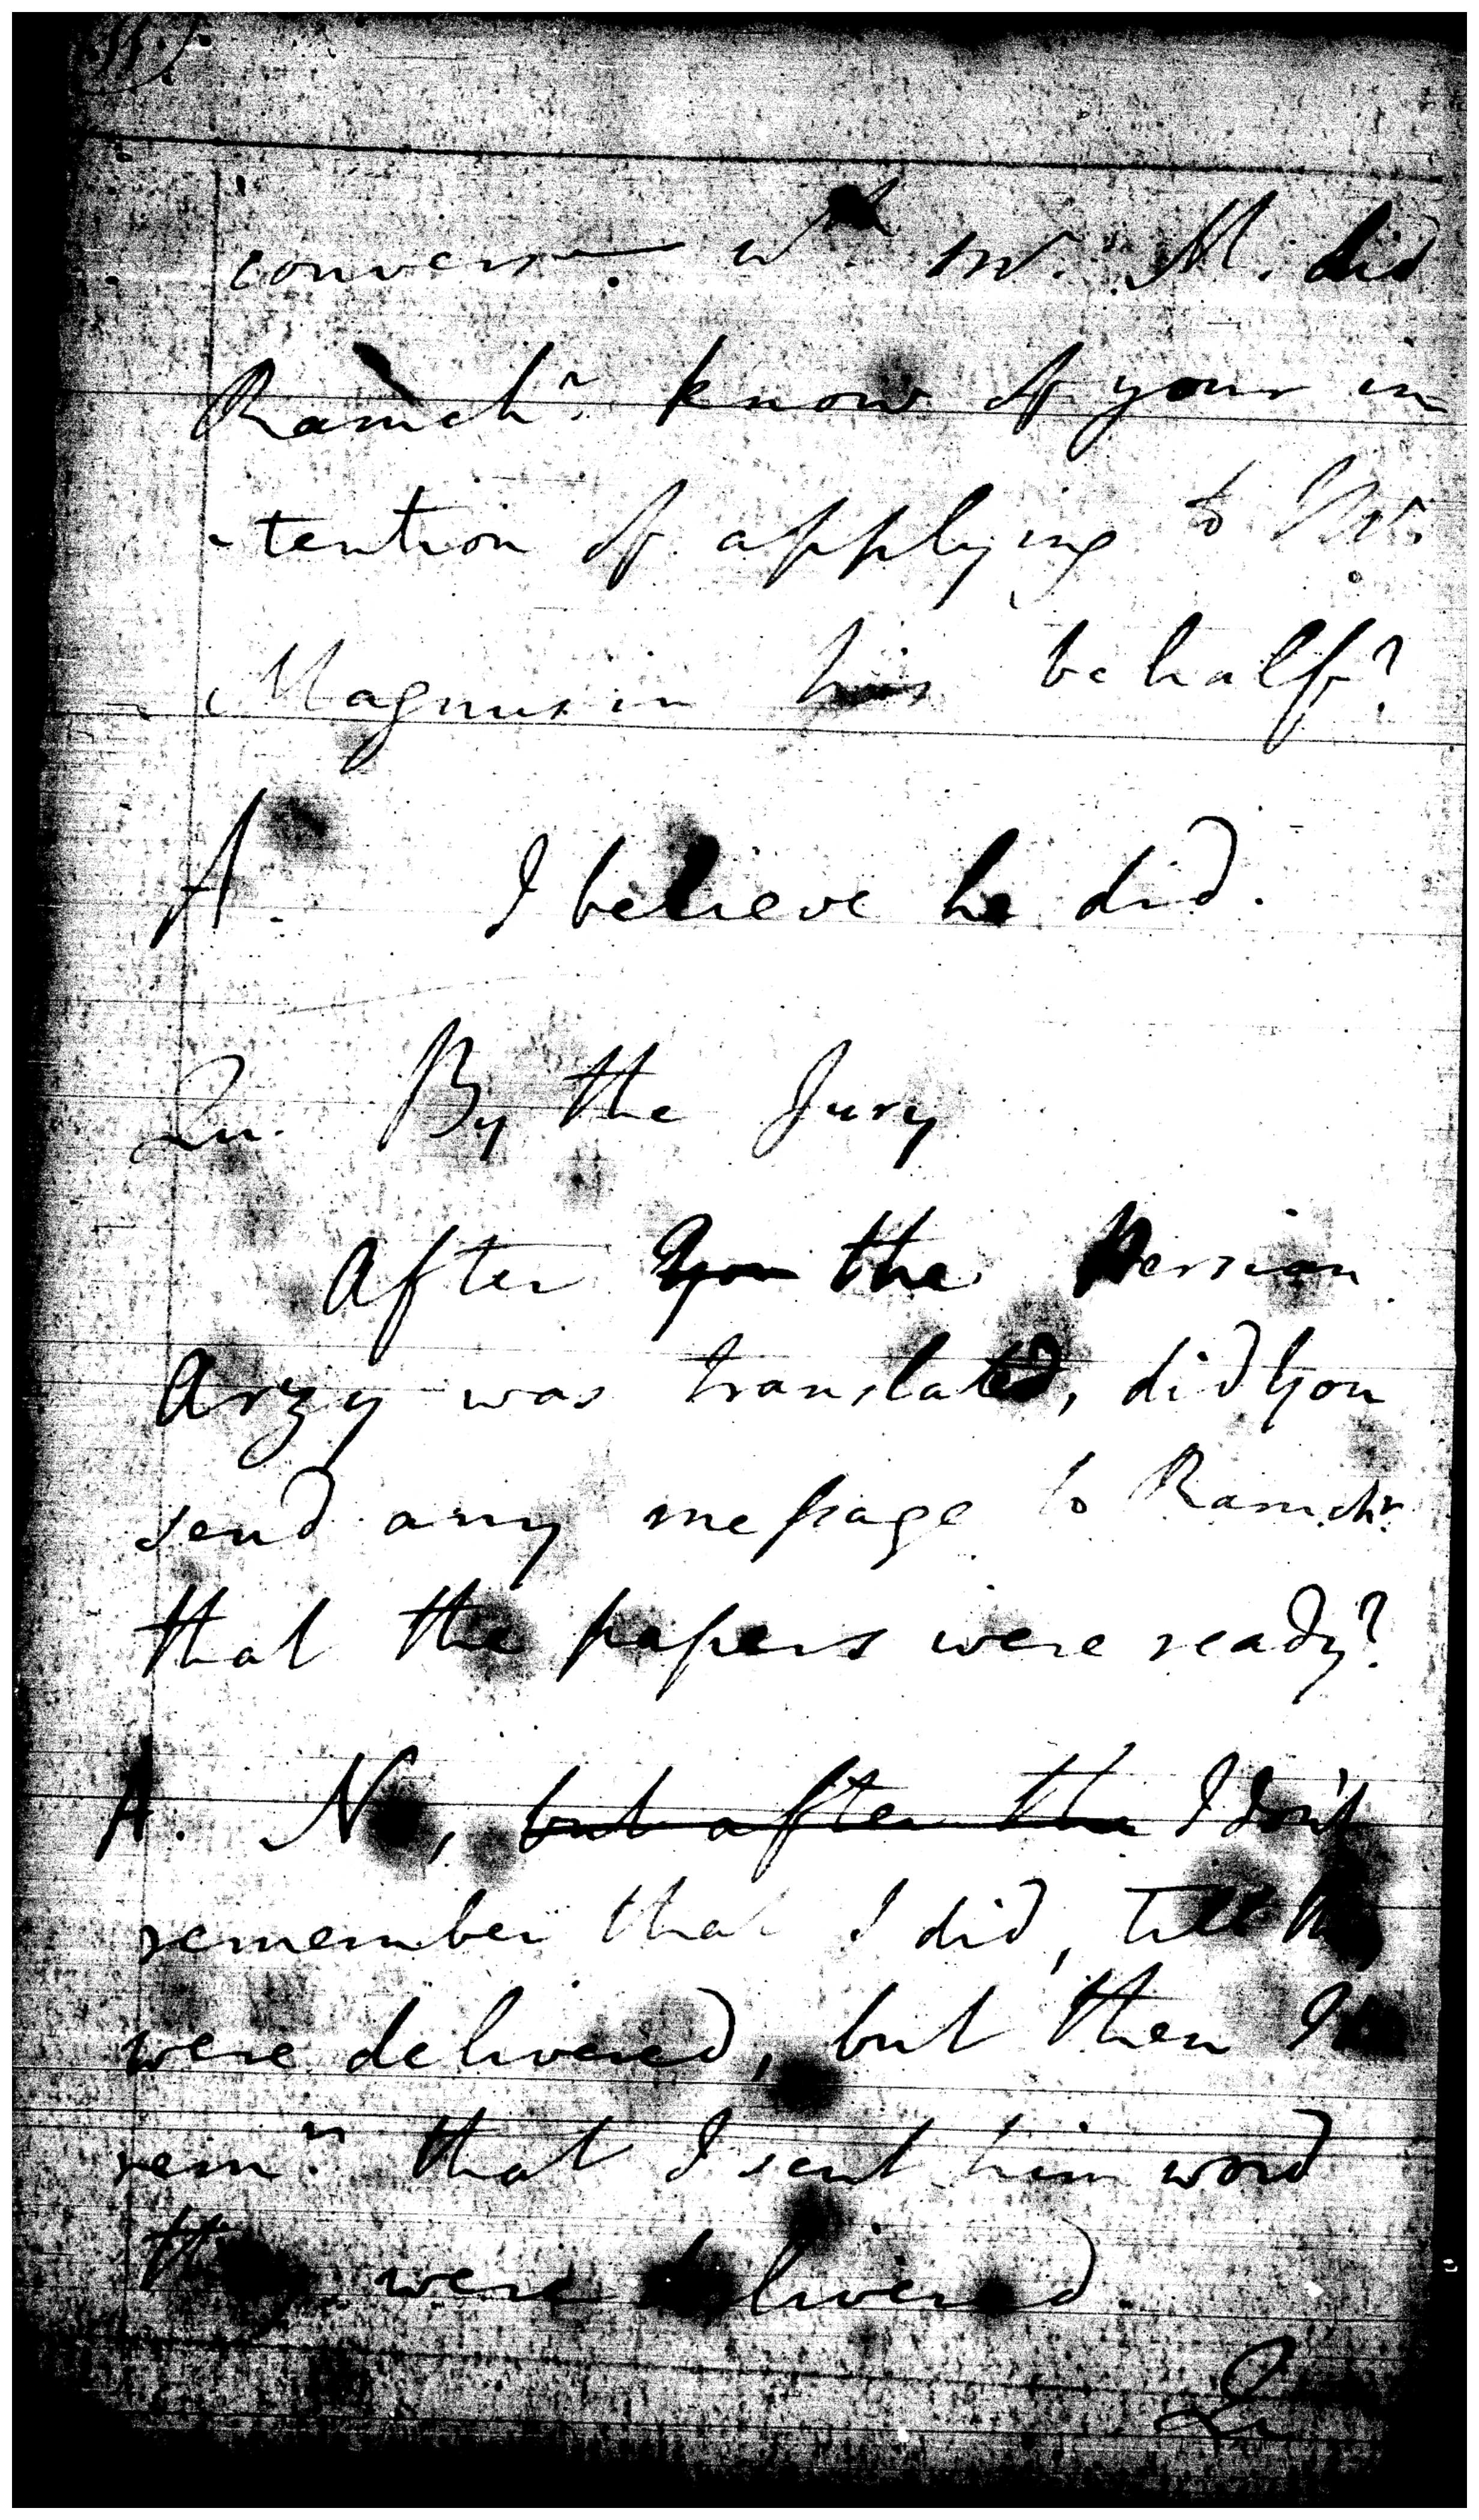 convers.n wth Mr. M. did
Ramchr. know of your in
-tention of applying to Mr.
Magnus in his behalf?
A. I believe he did.
Qu. By the Jury
After you the Persian
Arzy was translated, did you
send any message to Ramchr.
that the papers were ready?
A. No, but after the I don't
remember that I did, till they
were delivered, but then I
rem.r that I sent him word
they were delivered
Qu